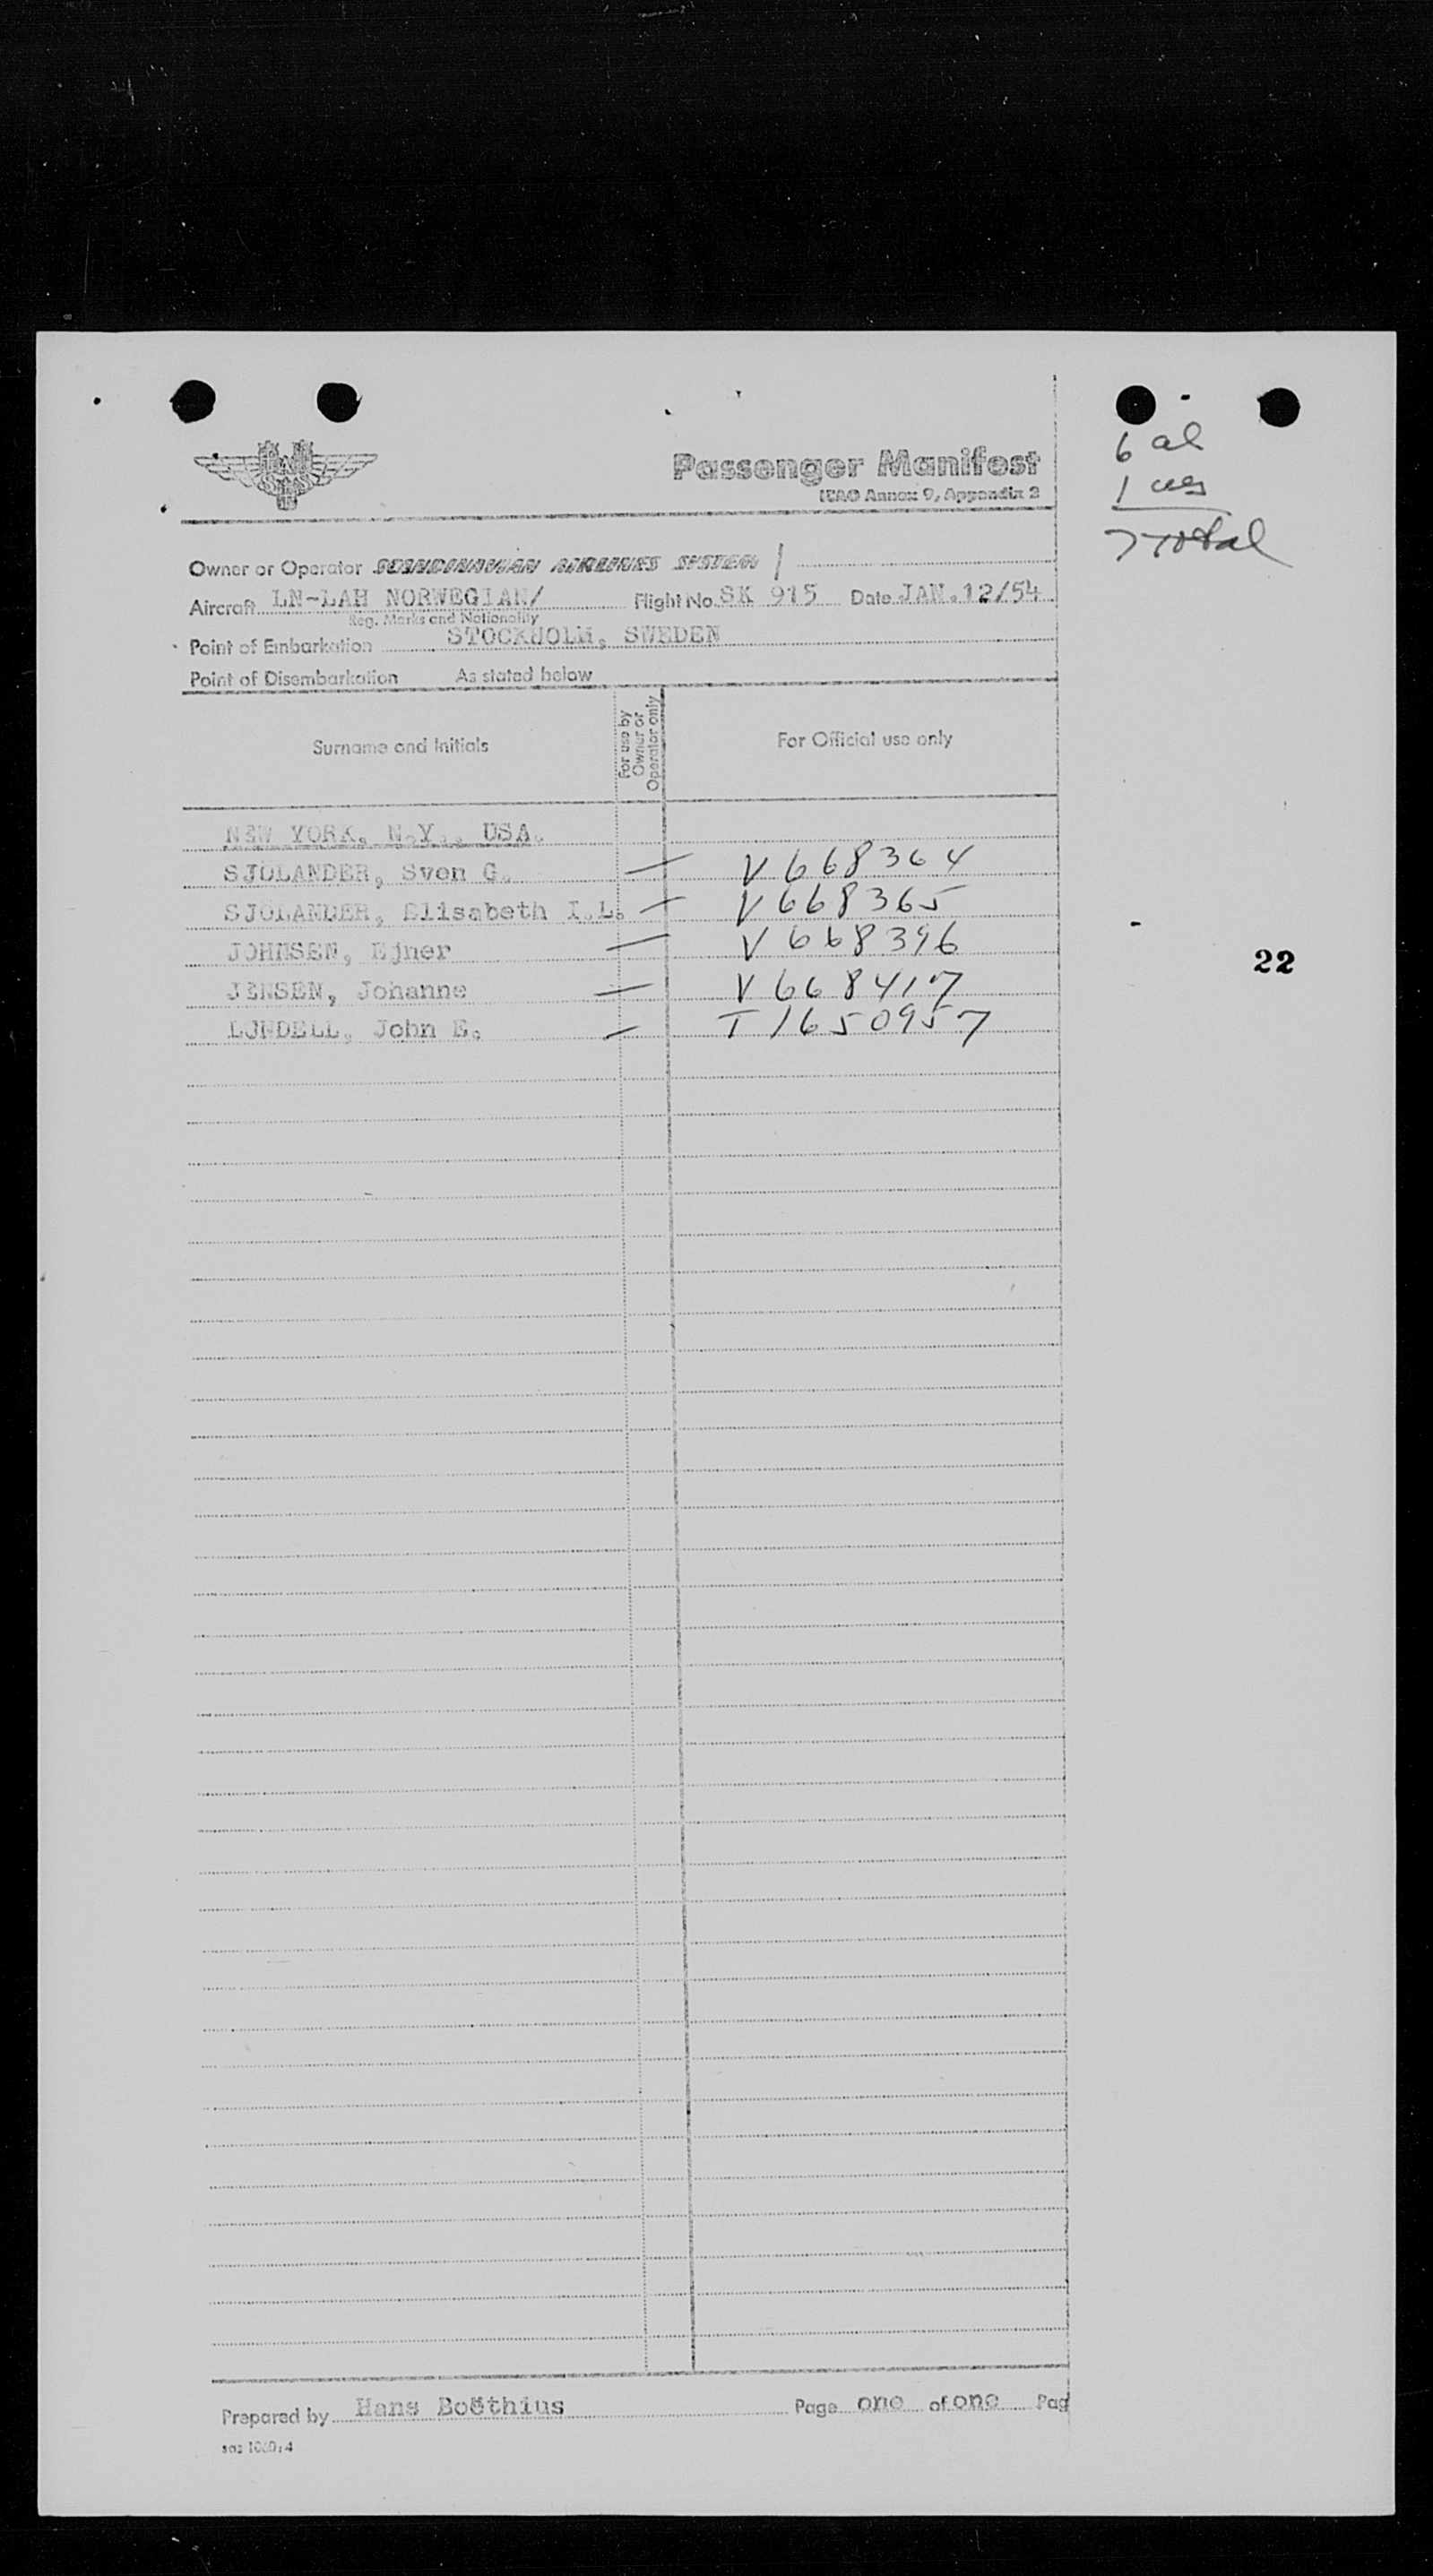 6 al
1 ucs
7 Total
SAS
Passenger Manifest
ICAO Annex 9, Appendix 2
Owner or Operator SCANDINAVIAN AIRLINES SYSTEM /
Aircraft LN-LAH NORWEGIAN/ Flight No. SK 915 Date JAN.12/54
Reg. Marks and Nationality
Point of Embarkation STOCKHOLM, SWEDEN
Point of Disembarkation As stated below
Surname and Initials For use by Owner or Operator only For Official use only
NEW YORK, N.Y., USA.
SJOLANDER, Sven G. — V 668364
SJOLANDER, Elisabeth I.L. — V 668365
JOHNSEN, Ejner — V 668396
JENSEN, Johanne — V 668417
LUNDELL, John E. — T 1650957
22
Prepared by Hans Boëthius Page one of one Pag
sas 1060:4